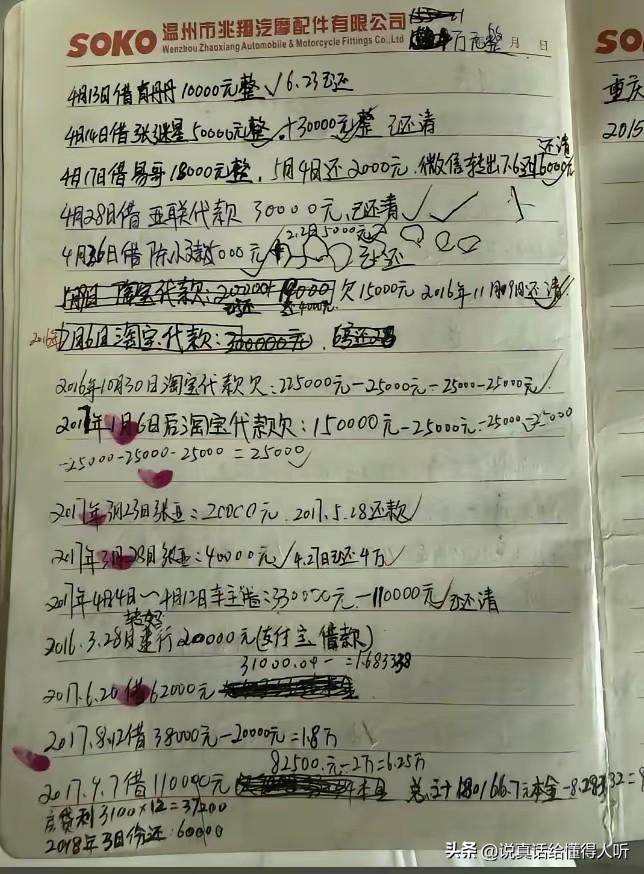 SOKO 温州市兆翔汽摩配件有限公司
Wenzhou Zhaoxiang Automobile & Motorcycle Fittings Co.,Ltd
万元整 月 日
SO
重庆
2015
4月13日借 10000元整√6.23已还
4月14日借张 50000元整√+30000元整 已还清
还清
4月17日借易哥18000元整，5月4日还2000元，微信转出 16000元
4月28日借亚联代款 30000元，已还清√
2.12日5000元
4月 日借陈 000元√ 已还
淘宝代款： 欠15000元 2016年11月09日还清√
2016年7月6日淘宝代款：300000元。
2016年10月30日淘宝代款欠：225000元-25000元-25000-25000元√
2017年1月6日后淘宝代款欠：150000元-25000元-25000-25000
-25000-25000-25000=25000√
2017年3月23日张亚：20000元 2017.5.28还款√
2017年3月28日张亚：40000元√4.27日已还4万√
2017年4月4日～4月12日车主 ：330000元-110000元√已还清
2016.3.28日建行200000元(支付宝借款)
2017.6.20借62000元
2017.8.12借38000元-20000元=1.8万
82500元-2万=6.25万
2017.9.7借110000元
房贷利3100×12=37200
2018年3月份还：60000
头条 @说真话给懂得人听